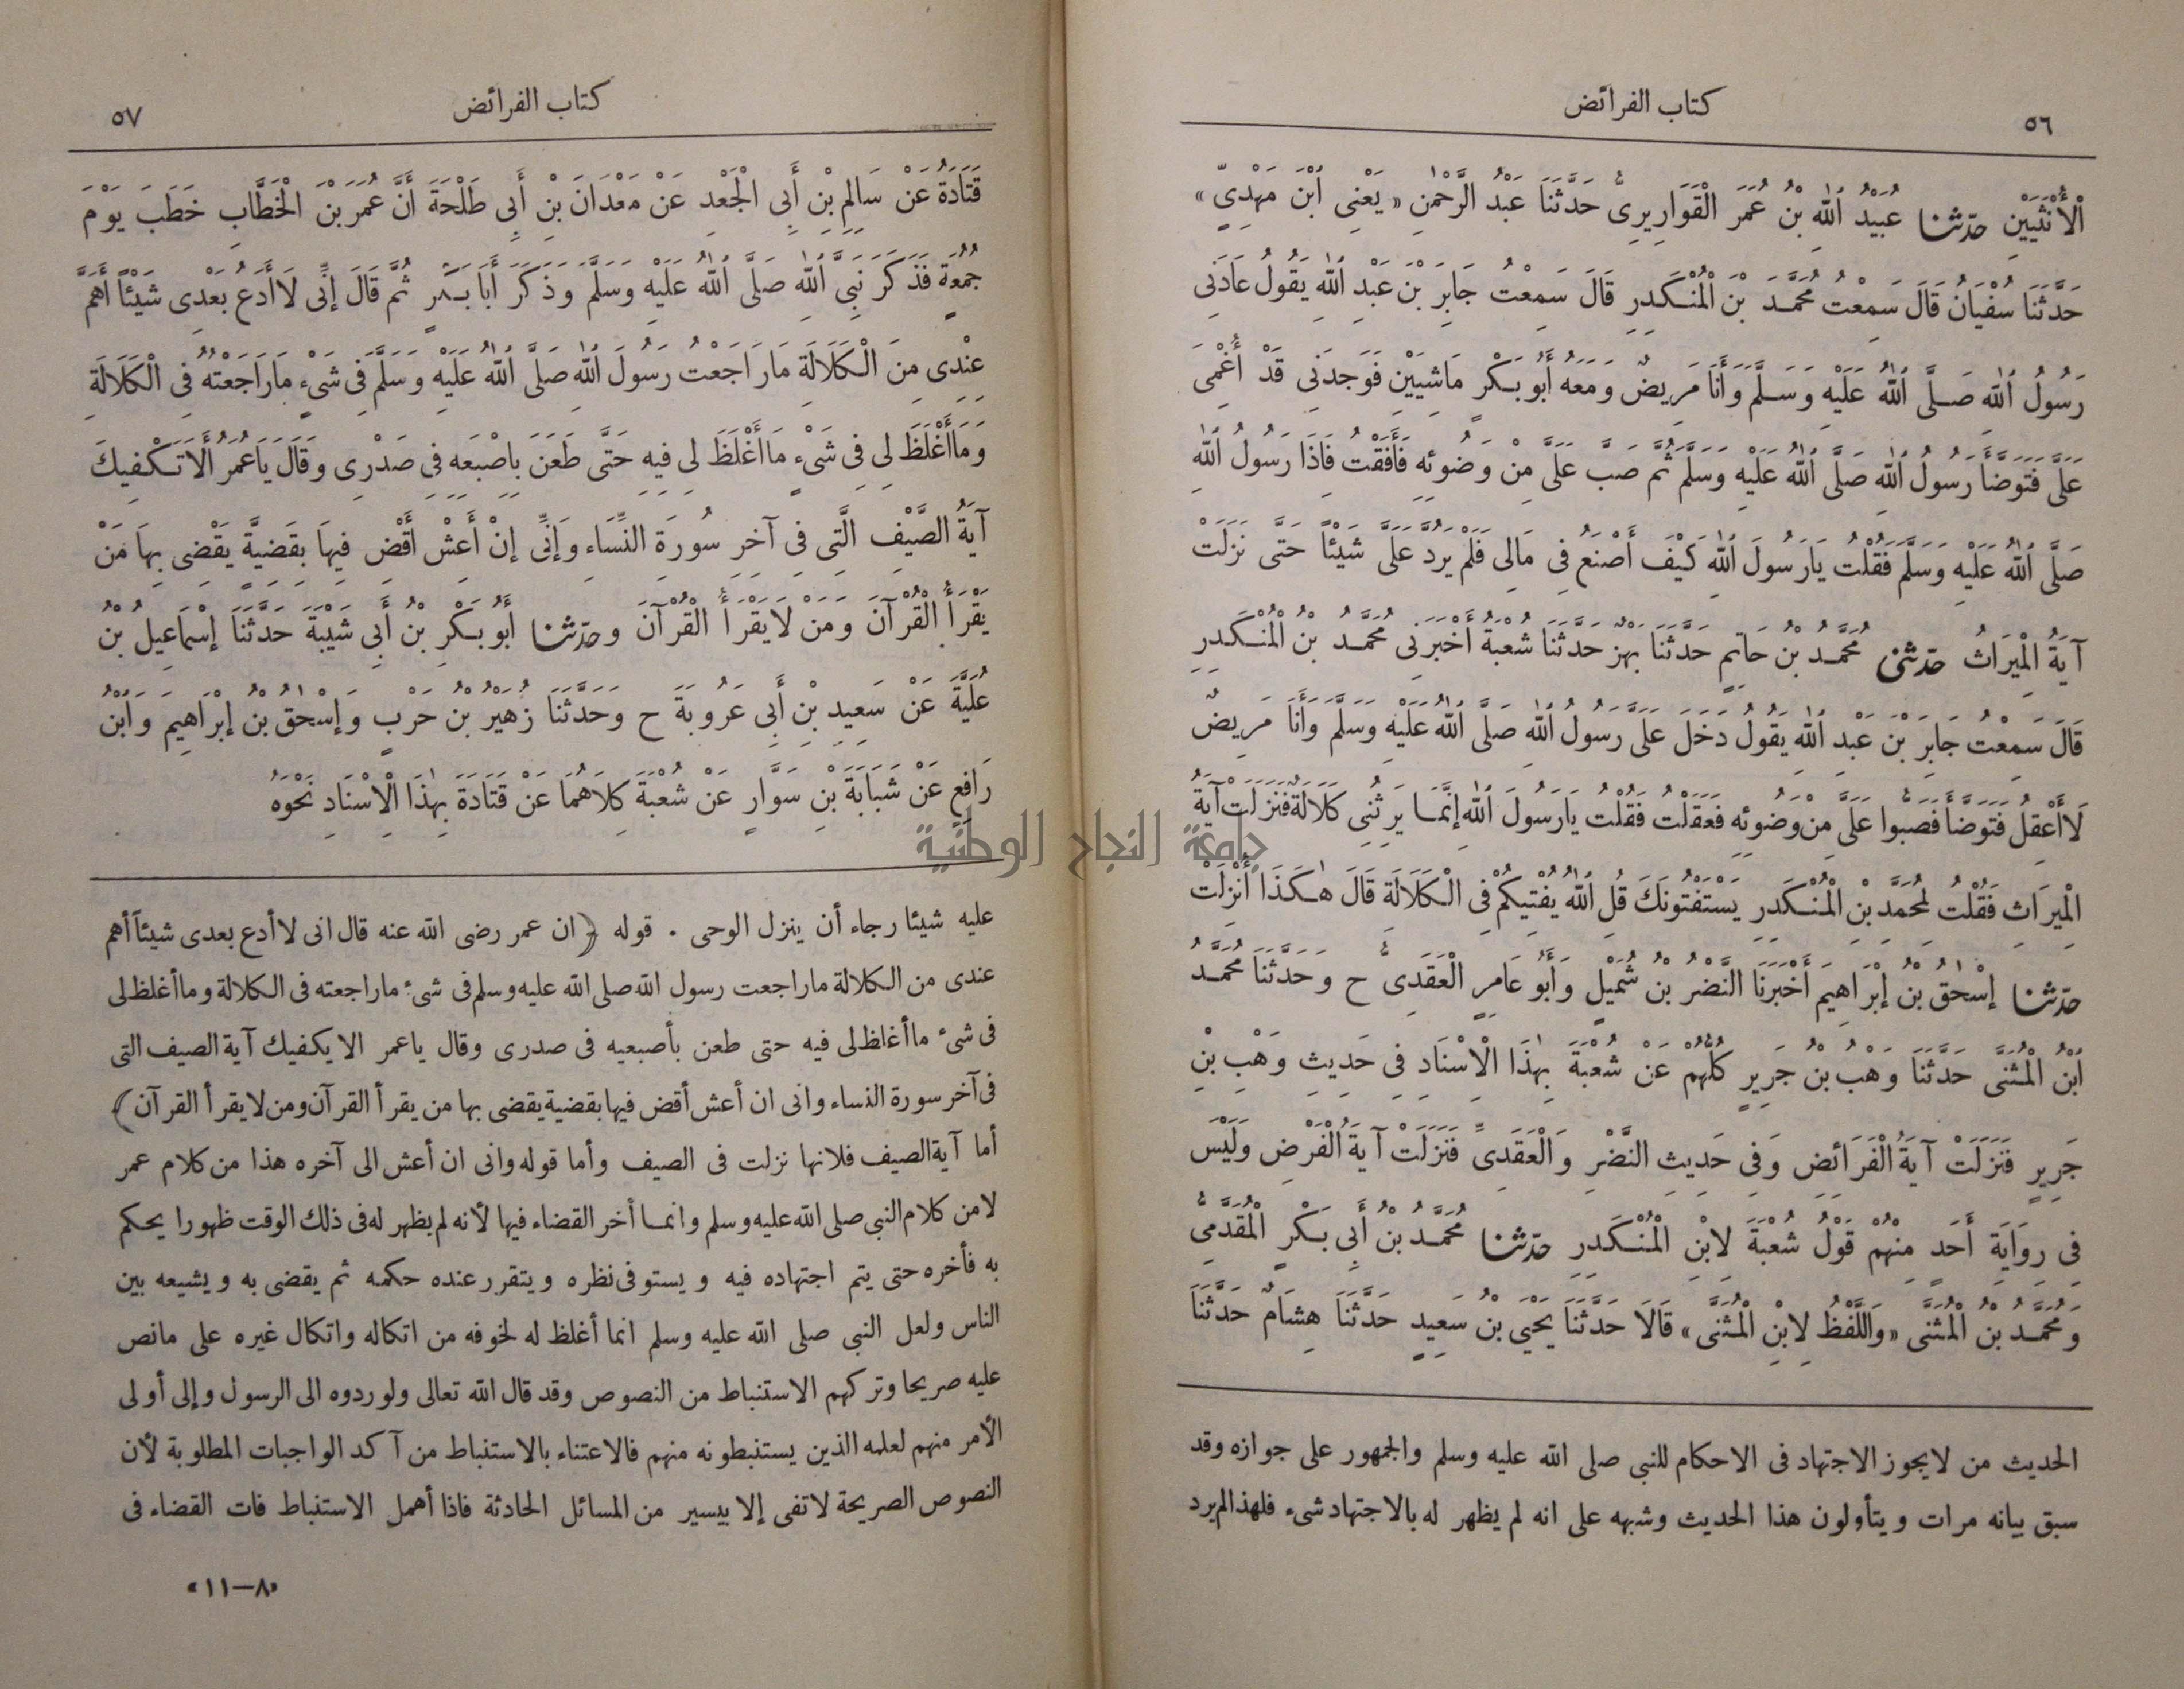 ٥٦
كتاب الفرائض
ٱلْأُنْثَيَيْنِ حدثنا عُبَيْدُ ٱللّٰهِ بْنُ عُمَرَ الْقَوَارِيرِىُّ حَدَّثَنَا عَبْدُ الرَّحْمٰنِ «يَعْنِى ٱبْنَ مَهْدِىٍّ»
حَدَّثَنَا سُفْيَانُ قَالَ سَمِعْتُ مُحَمَّدَ بْنَ الْمُنْكَدِرِ قَالَ سَمِعْتُ جَابِرَ بْنَ عَبْدِ ٱللّٰهِ يَقُولُ عَادَنِى
رَسُولُ ٱللّٰهِ صَلَّى ٱللّٰهُ عَلَيْهِ وَسَلَّمَ وَأَنَا مَرِيضٌ وَمَعَهُ أَبُو بَكْرٍ مَاشِيَيْنِ فَوَجَدَنِى قَدْ أُغْمِىَ
عَلَىَّ فَتَوَضَّأَ رَسُولُ ٱللّٰهِ صَلَّى ٱللّٰهُ عَلَيْهِ وَسَلَّمَ ثُمَّ صَبَّ عَلَىَّ مِنْ وَضُوئِهِ فَأَفَقْتُ فَاِذَا رَسُولُ ٱللّٰهِ
صَلَّى ٱللّٰهُ عَلَيْهِ وَسَلَّمَ فَقُلْتُ يَارَسُولَ ٱللّٰهِ كَيْفَ أَصْنَعُ فِى مَالِى فَلَمْ يَرُدَّ عَلَىَّ شَيْئًا حَتَّى نَزَلَتْ
آيَةُ الْمِيرَاثِ حدثنى مُحَمَّدُ بْنُ حَاتِمٍ حَدَّثَنَا بَهْزٌ حَدَّثَنَا شُعْبَةُ أَخْبَرَنِى مُحَمَّدُ بْنُ الْمُنْكَدِرِ
قَالَ سَمِعْتُ جَابِرَ بْنَ عَبْدِ ٱللّٰهِ يَقُولُ دَخَلَ عَلَىَّ رَسُولُ ٱللّٰهِ صَلَّى ٱللّٰهُ عَلَيْهِ وَسَلَّمَ وَأَنَا مَرِيضٌ
لَا أَعْقِلُ فَتَوَضَّأَ فَصَبُّوا عَلَىَّ مِنْ وَضُوئِهِ فَعَقَلْتُ فَقُلْتُ يَارَسُولَ ٱللّٰهِ إِنَّمَا يَرِثُنِى كَلَالَةٌ فَنَزَلَتْ آيَةُ
الْمِيرَاثِ فَقُلْتُ لِمُحَمَّدِ بْنِ الْمُنْكَدِرِ يَسْتَفْتُونَكَ قُلِ ٱللّٰهُ يُفْتِيكُمْ فِى الْكَلَالَةِ قَالَ هٰكَذَا أُنْزِلَتْ
حدثنا إِسْحٰقُ بْنُ إِبْرَاهِيمَ أَخْبَرَنَا النَّضْرُ بْنُ شُمَيْلٍ وَأَبُو عَامِرٍ الْعَقَدِىُّ ح وَحَدَّثَنَا مُحَمَّدُ
ٱبْنُ الْمُثَنَّى حَدَّثَنَا وَهْبُ بْنُ جَرِيرٍ كُلُّهُمْ عَنْ شُعْبَةَ بِهٰذَا الْاِسْنَادِ فِى حَدِيثِ وَهْبِ بْنِ
جَرِيرٍ فَنَزَلَتْ آيَةُ الْفَرَائِضِ وَفِى حَدِيثِ النَّضْرِ وَالْعَقَدِىِّ فَنَزَلَتْ آيَةُ الْفَرْضِ وَلَيْسَ
فِى رِوَايَةِ أَحَدٍ مِنْهُمْ قَوْلُ شُعْبَةَ لِابْنِ الْمُنْكَدِرِ حدثنا مُحَمَّدُ بْنُ أَبِى بَكْرٍ الْمُقَدَّمِىُّ
وَمُحَمَّدُ بْنُ الْمُثَنَّى «وَاللَّفْظُ لِابْنِ الْمُثَنَّى» قَالَا حَدَّثَنَا يَحْيَى بْنُ سَعِيدٍ حَدَّثَنَا هِشَامٌ حَدَّثَنَا
الحديث من لايجوز الاجتهاد فى الاحكام للنبى صلى الله عليه وسلم والجمهور على جوازه وقد
سبق بيانه مرات ويتأولون هذا الحديث وشبهه على انه لم يظهر له بالاجتهاد شىء فلهذا لم يرد
كتاب الفرائض
٥٧
قَتَادَةُ عَنْ سَالِمِ بْنِ أَبِى الْجَعْدِ عَنْ مَعْدَانَ بْنِ أَبِى طَلْحَةَ أَنَّ عُمَرَ بْنَ الْخَطَّابِ خَطَبَ يَوْمَ
جُمُعَةٍ فَذَكَرَ نَبِىَّ ٱللّٰهِ صَلَّى ٱللّٰهُ عَلَيْهِ وَسَلَّمَ وَذَكَرَ أَبَا بَكْرٍ ثُمَّ قَالَ إِنِّى لَا أَدَعُ بَعْدِى شَيْئًا أَهَمَّ
عِنْدِى مِنَ الْكَلَالَةِ مَا رَاجَعْتُ رَسُولَ ٱللّٰهِ صَلَّى ٱللّٰهُ عَلَيْهِ وَسَلَّمَ فِى شَىْءٍ مَا رَاجَعْتُهُ فِى الْكَلَالَةِ
وَمَا أَغْلَظَ لِى فِى شَىْءٍ مَا أَغْلَظَ لِى فِيهِ حَتَّى طَعَنَ بِاِصْبَعِهِ فِى صَدْرِى وَقَالَ يَاعُمَرُ أَلَا تَكْفِيكَ
آيَةُ الصَّيْفِ الَّتِى فِى آخِرِ سُورَةِ النِّسَاءِ وَإِنِّى إِنْ أَعِشْ أَقْضِ فِيهَا بِقَضِيَّةٍ يَقْضِى بِهَا مَنْ
يَقْرَأُ الْقُرْآنَ وَمَنْ لَا يَقْرَأُ الْقُرْآنَ وحدثنا أَبُو بَكْرِ بْنُ أَبِى شَيْبَةَ حَدَّثَنَا إِسْمَاعِيلُ بْنُ
عُلَيَّةَ عَنْ سَعِيدِ بْنِ أَبِى عَرُوبَةَ ح وَحَدَّثَنَا زُهَيْرُ بْنُ حَرْبٍ وَإِسْحٰقُ بْنُ إِبْرَاهِيمَ وَٱبْنُ
رَافِعٍ عَنْ شَبَابَةَ بْنِ سَوَّارٍ عَنْ شُعْبَةَ كِلَاهُمَا عَنْ قَتَادَةَ بِهٰذَا الْاِسْنَادِ نَحْوَهُ
جامعة النجاح الوطنية
عليه شيئا رجاء أن ينزل الوحى . قوله ﴿ان عمر رضى الله عنه قال انى لا أدع بعدى شيئاً أهم
عندى من الكلالة ماراجعت رسول الله صلى الله عليه وسلم فى شىء ماراجعته فى الكلالة وما أغلظ لى
فى شىء ما أغلظ لى فيه حتى طعن بأصبعيه فى صدرى وقال ياعمر الا يكفيك آية الصيف التى
فى آخر سورة النساء وانى ان أعش أقض فيها بقضية يقضى بها من يقرأ القرآن ومن لا يقرأ القرآن﴾
أما آية الصيف فلانها نزلت فى الصيف وأما قوله وانى ان أعش الى آخره هذا من كلام عمر
لامن كلام النبى صلى الله عليه وسلم وانما أخر القضاء فيها لأنه لم يظهر له فى ذلك الوقت ظهورا يحكم
به فأخره حتى يتم اجتهاده فيه ويستوفى نظره ويتقرر عنده حكمه ثم يقضى به ويشيعه بين
الناس ولعل النبى صلى الله عليه وسلم انما أغلظ له لخوفه من اتكاله واتكال غيره على مانص
عليه صريحا وتركهم الاستنباط من النصوص وقد قال الله تعالى ولو ردوه الى الرسول وإلى أولى
الأمر منهم لعلمه الذين يستنبطونه منهم فالاعتناء بالاستنباط من آكد الواجبات المطلوبة لأن
النصوص الصريحة لاتفى إلا بيسير من المسائل الحادثة فاذا أهمل الاستنباط فات القضاء فى
«٨—١١»